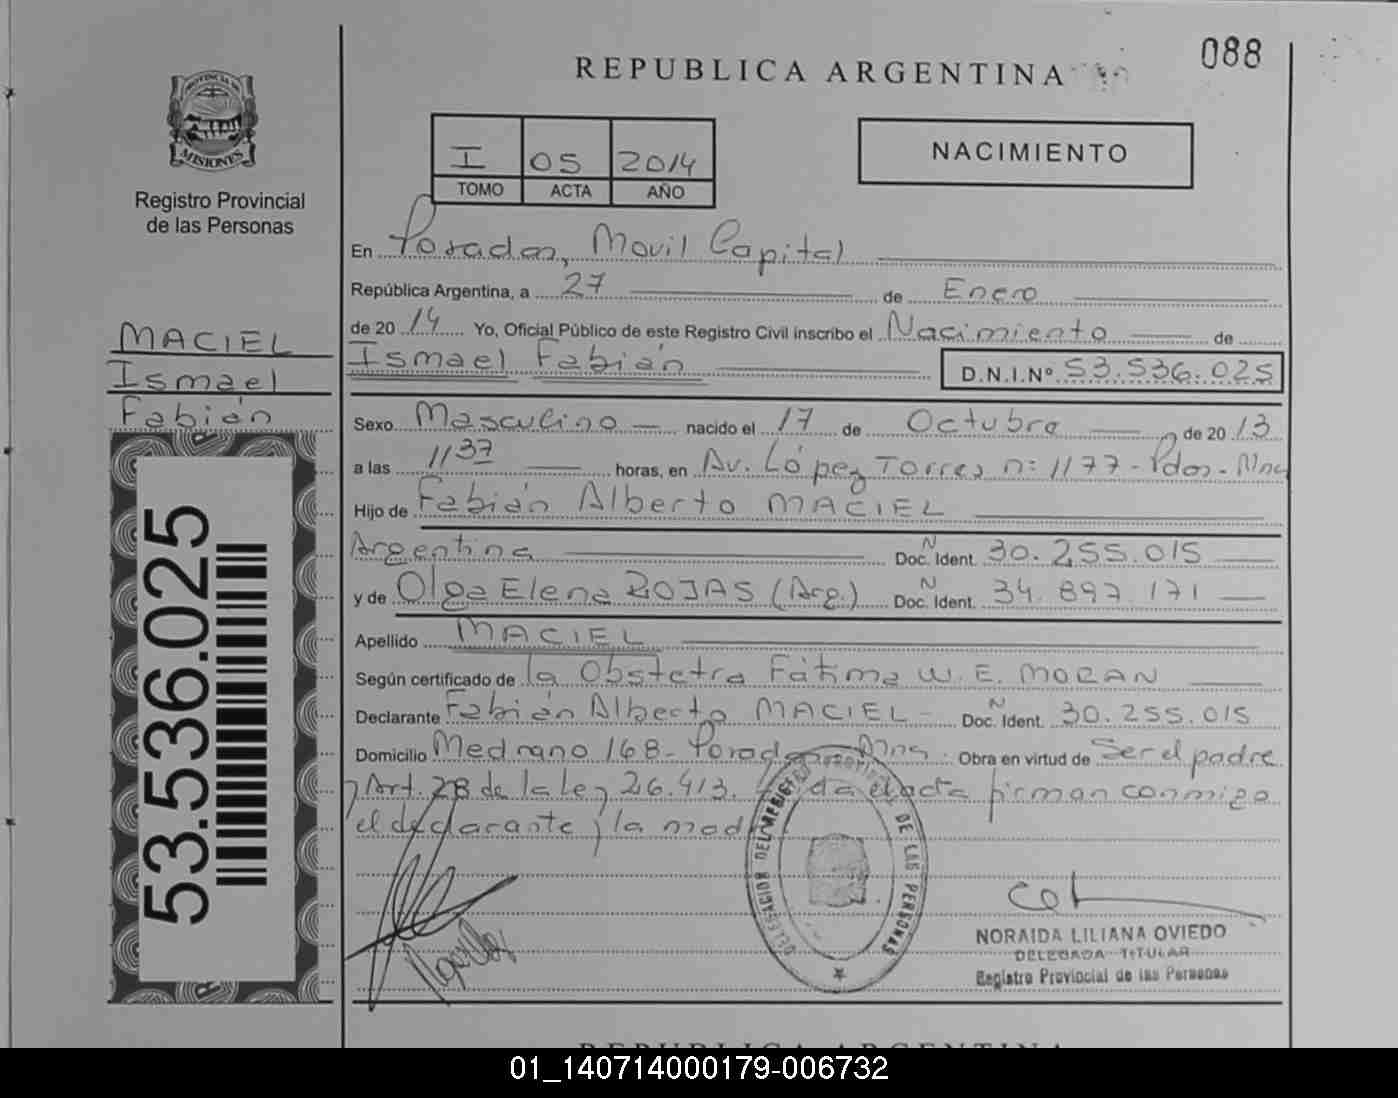 088
REPUBLICA ARGENTINA
PROVINCIA DE
MISIONES
Registro Provincial
de las Personas
I 05 2014
TOMO ACTA AÑO
NACIMIENTO
En Posadas, Movil Capital
República Argentina, a 27 de Enero
de 2014 Yo, Oficial Público de este Registro Civil inscribo el Nacimiento de
Ismael Fabián D.N.I.Nº 53.536.025
MACIEL
Ismael
Fabián
Sexo Masculino nacido el 17 de Octubre de 2013
a las 1137 horas, en Av. López Torres n: 1177 - Pdas - Mnes
Hijo de Fabián Alberto MACIEL
Argentina Doc. Ident. N 30.255.015
y de Olga Elena ROJAS (Arg.) Doc. Ident. N 34.897.171
Apellido MACIEL
Según certificado de la Obstetra Fátima W. E. MORAN
Declarante Fabián Alberto MACIEL - Doc. Ident. N 30.255.015
Domicilio Medrano 168 - Posadas Mnes. Obra en virtud de Ser el padre
y Art. 28 de la Ley 26.413. da el acta firman conmigo
el declarante y la mad
53.536.025
DELEGACION DEL REGISTRO PROVINCIAL DE LAS PERSONAS
NORAIDA LILIANA OVIEDO
DELEGADA TITULAR
Registro Provincial de las Personas
REPUBLICA ARGENTINA
01_140714000179-006732